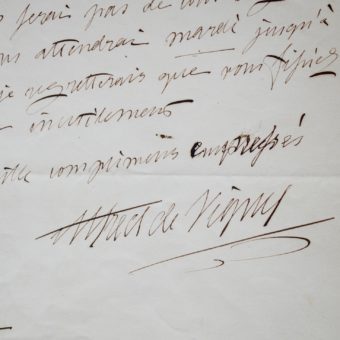 serai pas de
attendrai mardi jusqu'à
je regretterais que vous fissiez
inutilement
mille complimens empressés
Alfred de Vigny